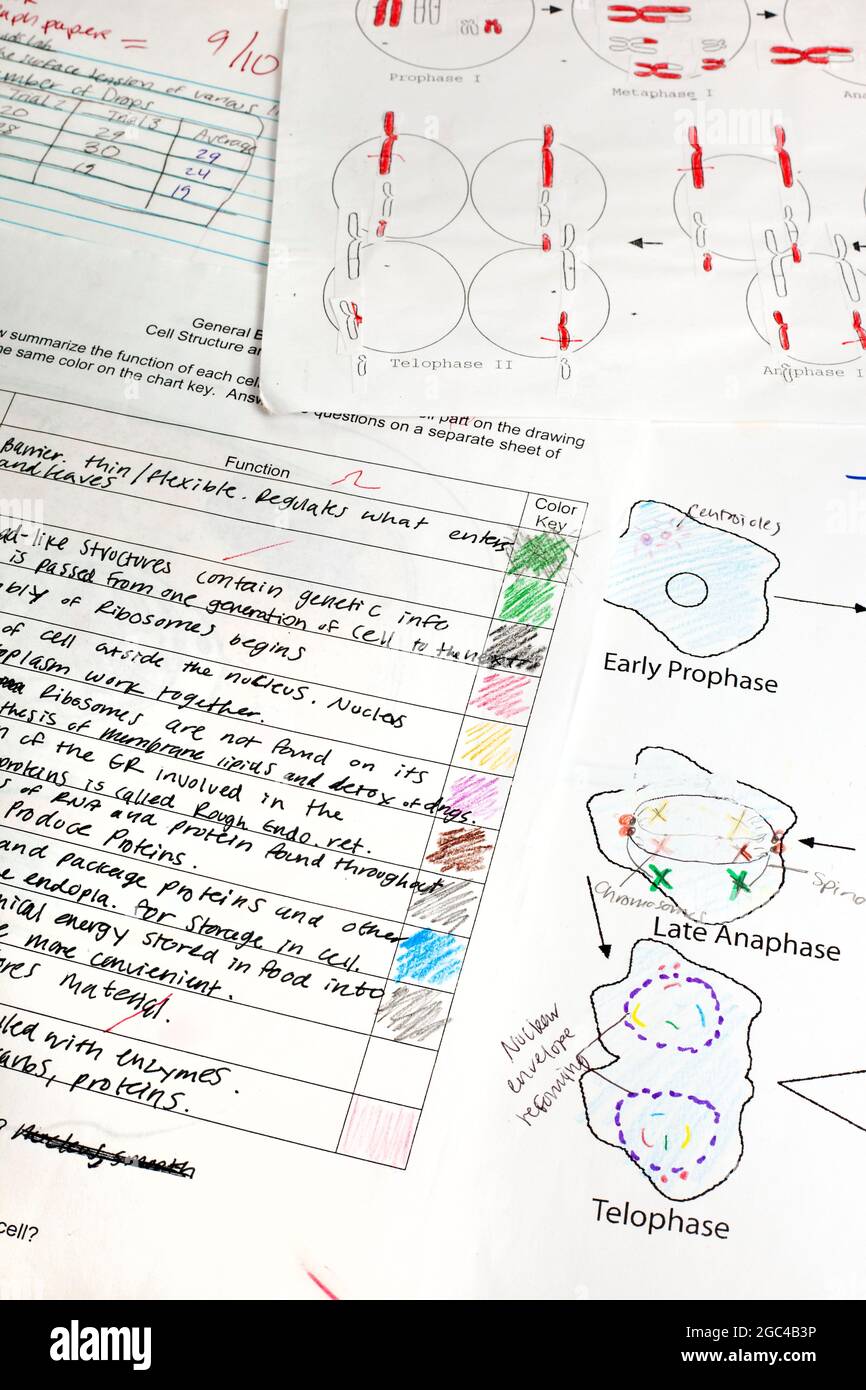 graph papers = 9/10
surface tension of various
Number of Drops
Trial 2 Trial 3 Average
20 29 29
28 30 24
19 19
Prophase I
Metaphase I
Ana
Telophase II
Anaphase I
General B
Cell Structure an
w summarize the function of each cell part on the drawing
he same color on the chart key. Answ questions on a separate sheet of
Function
Color
Key
Barrier. thin/flexible. Regulates what enters
and leaves
ad-like structures contain genetic info
is passed from one generation of cell to the next
mbly of Ribosomes begins
of cell outside the nucleus. Nucleus
oplasm work together.
Ribosomes are not found on its
thesis of membrane lipids and detox of drugs.
n of the ER involved in the
proteins is called Rough Endo. ret.
s of RNA and protein found throughout
Produce Proteins.
and package proteins and other
e endopla. for storage in cell.
mical energy stored in food into
e more convienient.
ores Material.
lled with enzymes.
carbs, proteins.
cell?
centrioles
Early Prophase
Chromosomes
Late Anaphase
Nuclear
envelope
reforming
Telophase
alamy
alamy
Image ID: 2GC4B3P
www.alamy.com